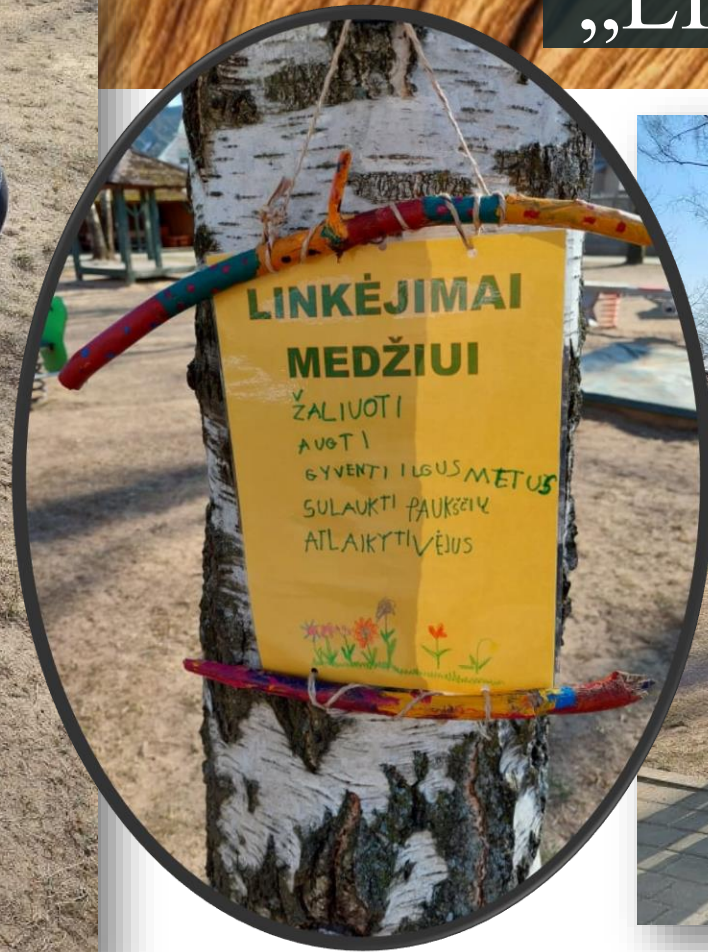 LINKĖJIMAI
MEDŽIUI
ŽALIUOTI
AUGTI
GYVENTI ILGUS METUS
SULAUKTI PAUKŠČIŲ
ATLAIKYTI VĖJUS